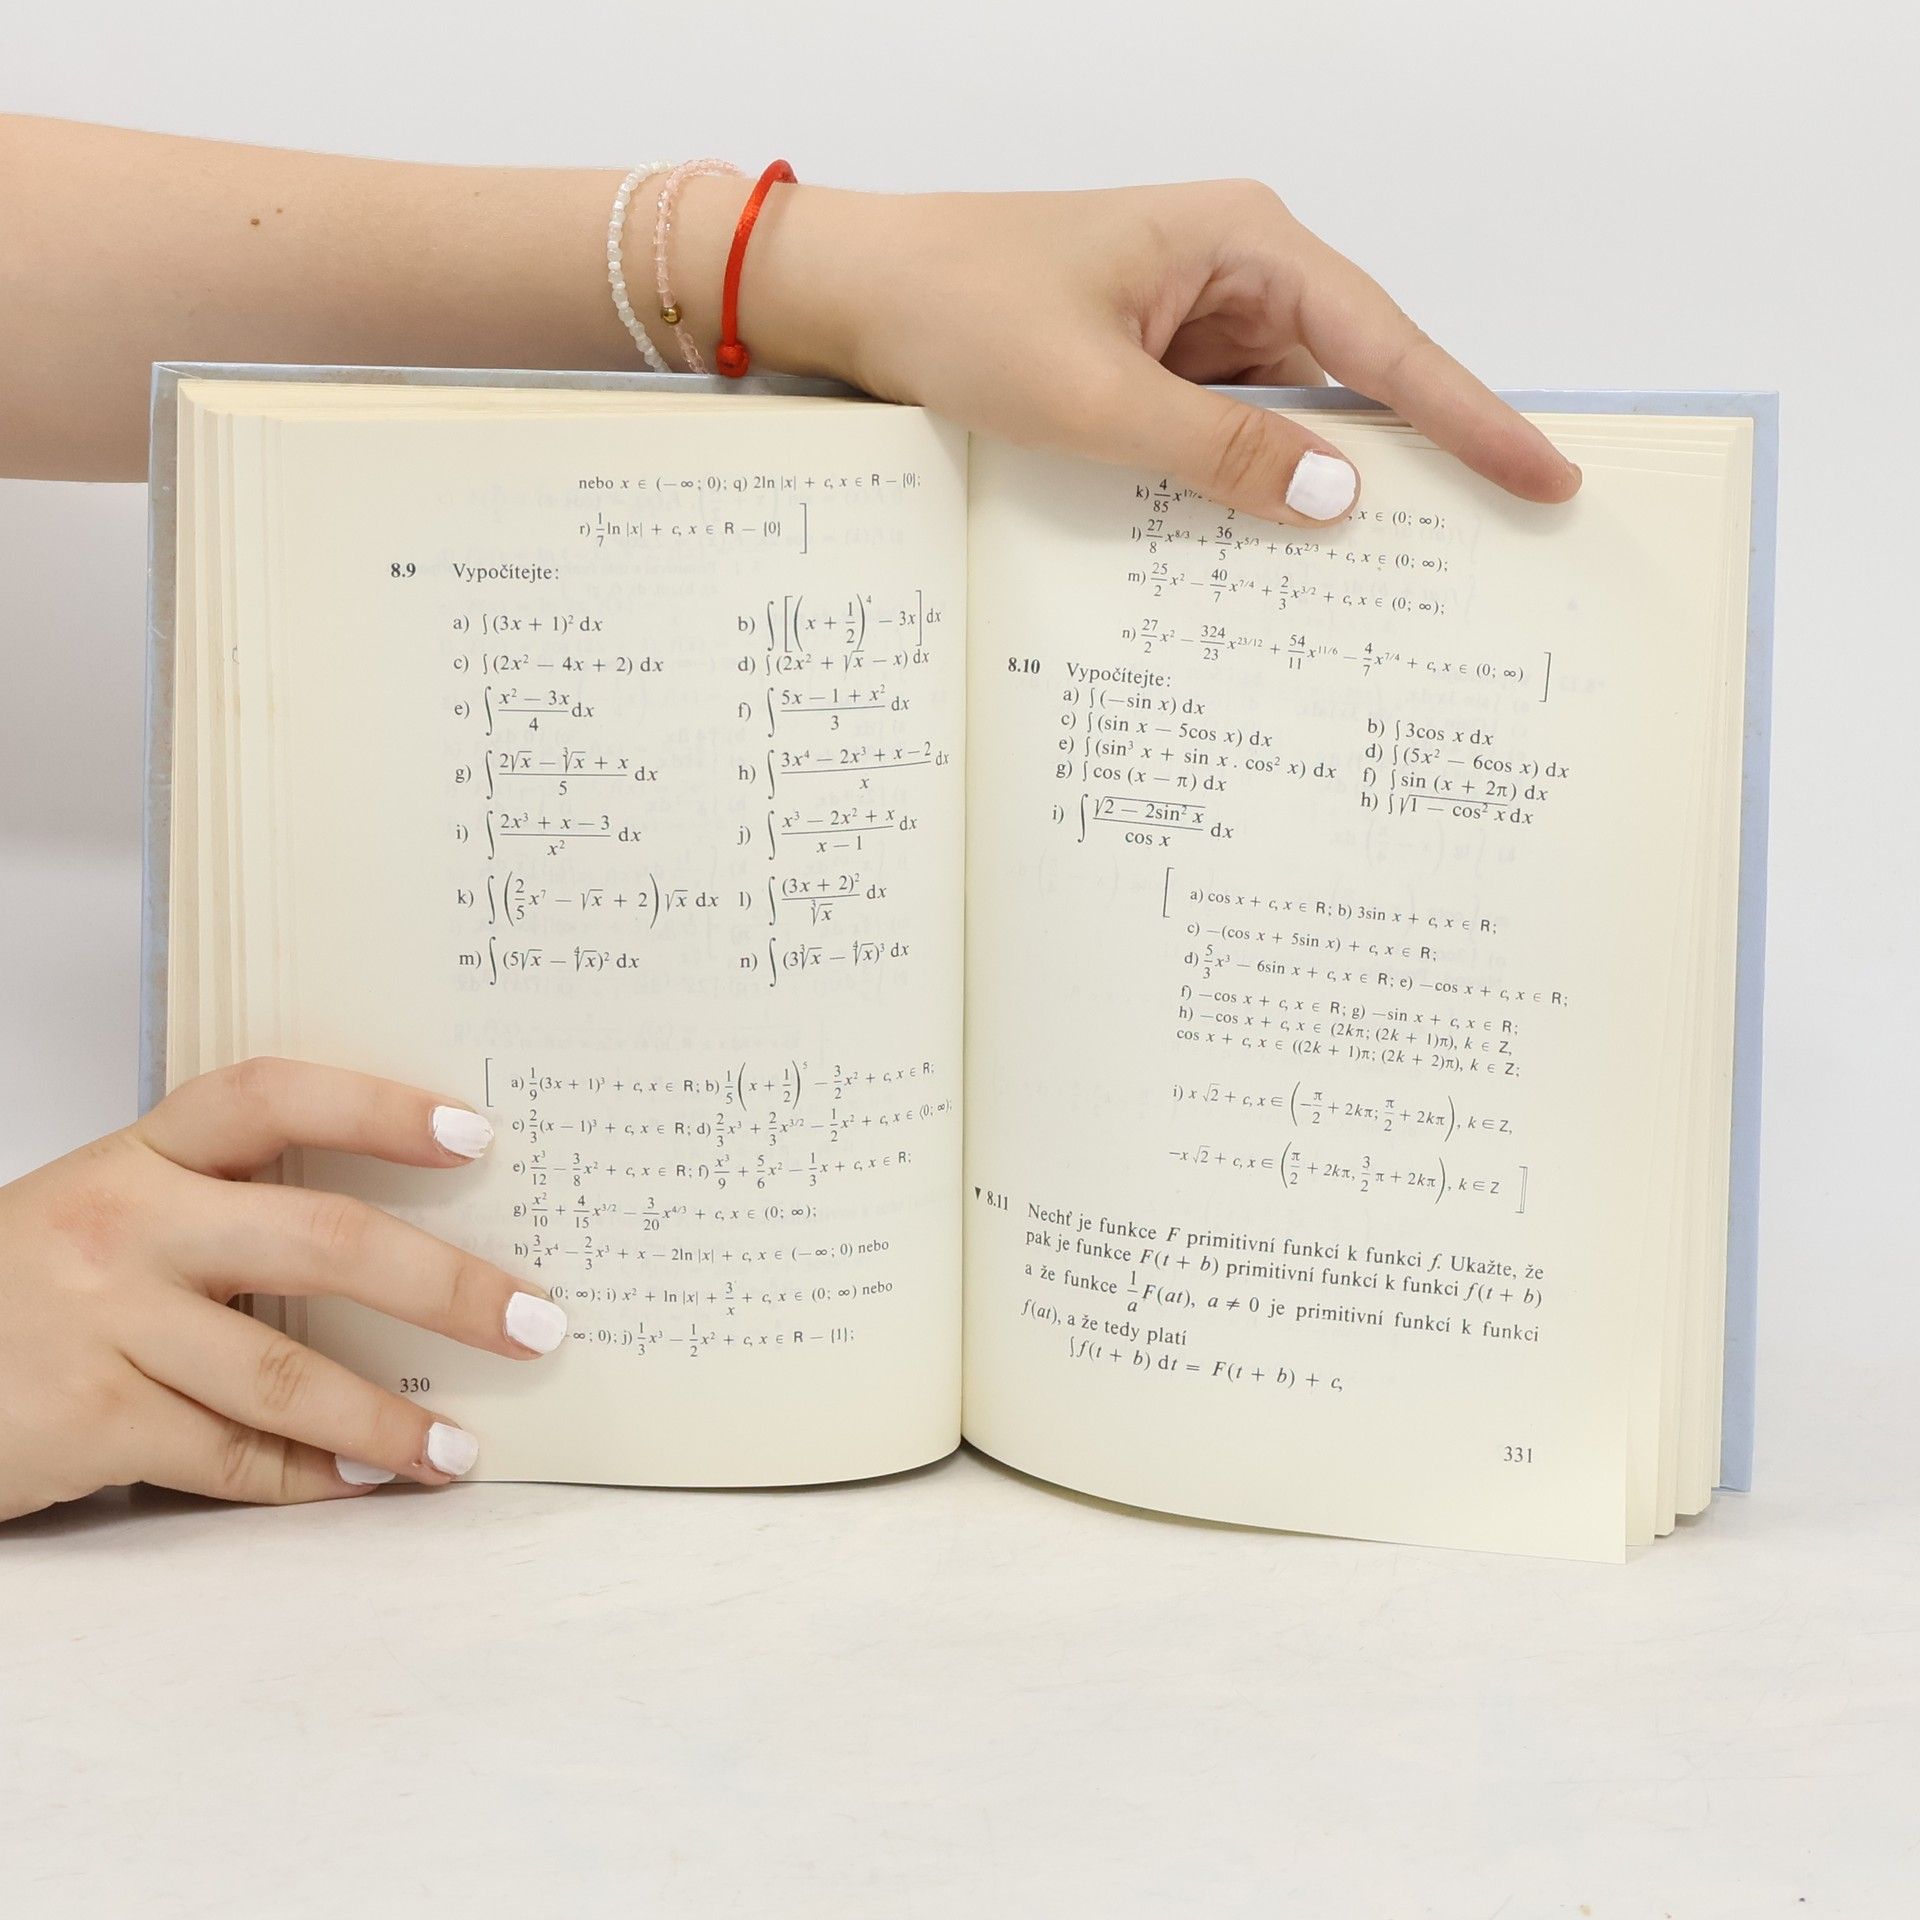 nebo x ∈ (−∞; 0); q) 2ln |x| + c, x ∈ R − {0};
r) 1/7 ln |x| + c, x ∈ R − {0} ]
8.9 Vypočítejte:
a) ∫(3x + 1)² dx b) ∫[(x + 1/2)⁴ − 3x] dx
c) ∫(2x² − 4x + 2) dx d) ∫(2x² + √x − x) dx
e) ∫ (x² − 3x)/4 dx f) ∫ (5x − 1 + x²)/3 dx
g) ∫ (2√x − ∛x + x)/5 dx h) ∫ (3x⁴ − 2x³ + x − 2)/x dx
i) ∫ (2x³ + x − 3)/x² dx j) ∫ (x³ − 2x² + x)/(x − 1) dx
k) ∫(2/5 x⁷ − √x + 2)√x dx l) ∫ (3x + 2)²/∛x dx
m) ∫(5√x − ∜x)² dx n) ∫(3∛x − ∜x)³ dx
[ a) 1/9 (3x + 1)³ + c, x ∈ R; b) 1/5 (x + 1/2)⁵ − 3/2 x² + c, x ∈ R;
c) 2/3 (x − 1)³ + c, x ∈ R; d) 2/3 x³ + 2/3 x^(3/2) − 1/2 x² + c, x ∈ ⟨0; ∞);
e) x³/12 − 3/8 x² + c, x ∈ R; f) x³/9 + 5/6 x² − 1/3 x + c, x ∈ R;
g) x²/10 + 4/15 x^(3/2) − 3/20 x^(4/3) + c, x ∈ (0; ∞);
h) 3/4 x⁴ − 2/3 x³ + x − 2ln |x| + c, x ∈ (−∞; 0) nebo
(0; ∞); i) x² + ln |x| + 3/x + c, x ∈ (0; ∞) nebo
−∞; 0); j) 1/3 x³ − 1/2 x² + c, x ∈ R − {1};
330
k) 4/85 x^(17/2 , x ∈ (0; ∞);
l) 27/8 x^(8/3) + 36/5 x^(5/3) + 6x^(2/3) + c, x ∈ (0; ∞);
m) 25/2 x² − 40/7 x^(7/4) + 2/3 x^(3/2) + c, x ∈ (0; ∞);
n) 27/2 x² − 324/23 x^(23/12) + 54/11 x^(11/6) − 4/7 x^(7/4) + c, x ∈ (0; ∞) ]
8.10 Vypočítejte:
a) ∫(−sin x) dx b) ∫3cos x dx
c) ∫(sin x − 5cos x) dx d) ∫(5x² − 6cos x) dx
e) ∫(sin³ x + sin x . cos² x) dx f) ∫sin (x + 2π) dx
g) ∫cos (x − π) dx h) ∫√(1 − cos² x) dx
i) ∫ √(2 − 2sin² x)/cos x dx
[ a) cos x + c, x ∈ R; b) 3sin x + c, x ∈ R;
c) −(cos x + 5sin x) + c, x ∈ R;
d) 5/3 x³ − 6sin x + c, x ∈ R; e) −cos x + c, x ∈ R;
f) −cos x + c, x ∈ R; g) −sin x + c, x ∈ R;
h) −cos x + c, x ∈ (2kπ; (2k + 1)π), k ∈ Z,
cos x + c, x ∈ ((2k + 1)π; (2k + 2)π), k ∈ Z;
i) x √2 + c, x ∈ (−π/2 + 2kπ; π/2 + 2kπ), k ∈ Z,
−x √2 + c, x ∈ (π/2 + 2kπ, 3/2 π + 2kπ), k ∈ Z ]
▼ 8.11 Nechť je funkce F primitivní funkcí k funkci f. Ukažte, že
pak je funkce F(t + b) primitivní funkcí k funkci f(t + b)
a že funkce 1/a F(at), a ≠ 0 je primitivní funkcí k funkci
f(at), a že tedy platí
∫f(t + b) dt = F(t + b) + c,
331